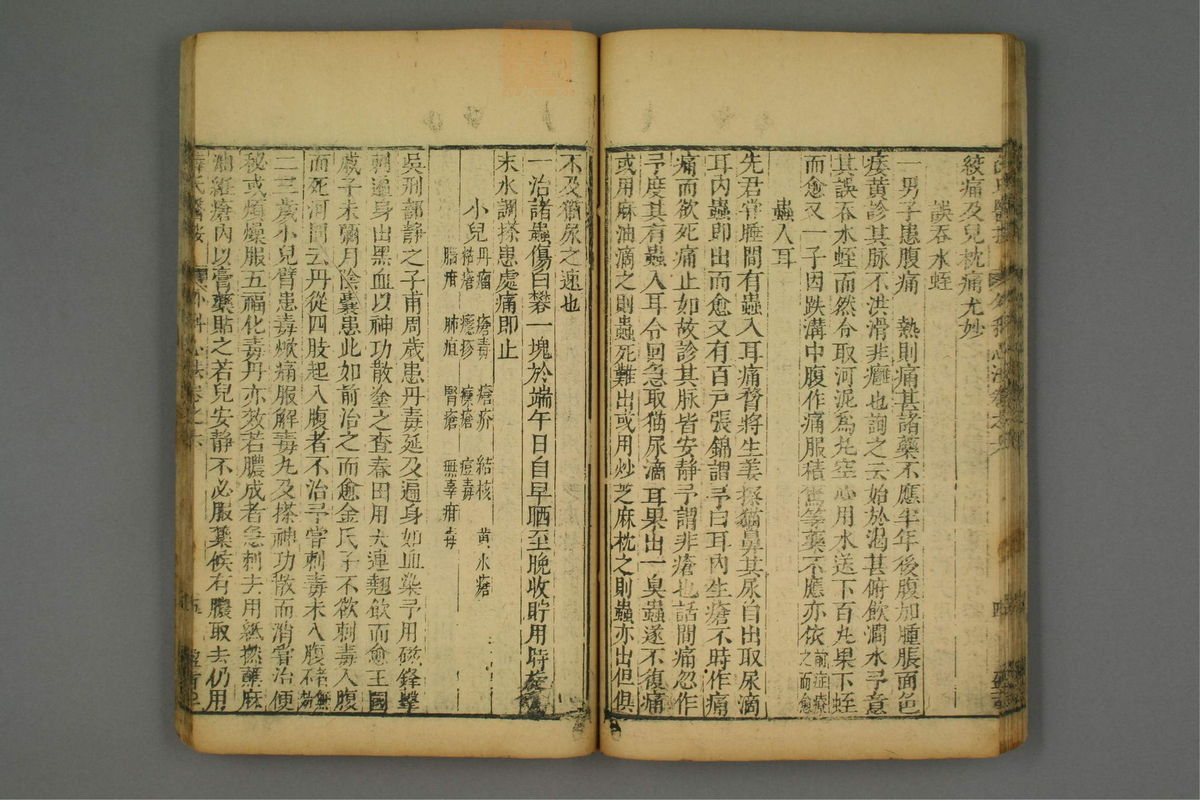 絞痛及兒枕痛尤妙
誤吞水蛭
一男子患腹痛 熱則痛甚諸藥不應半年後腹加腫脹面色
痿黃診其脉不洪滑非癰也詢之云始於渴甚俯飲澗水予意
其誤吞水蛭而然令取河泥爲丸空心用水送下百丸果下蛭
而愈又一子因跌溝中腹作痛服積等藥不應亦依前症療之而愈
蟲入耳
先君嘗睡間有蟲入耳痛瞀將生姜擦猫鼻其尿自出取尿滴
耳內蟲即出而愈又有百戶張錦謂予曰耳內生瘡不時作痛
痛而欲死痛止如故診其脉皆安靜予謂非瘡也話間痛忽作
予度其有蟲入耳令回急取猫尿滴耳果出一臭蟲遂不復痛
或用麻油滴之則蟲死難出或用炒芝麻枕之則蟲亦出但俱
不及猫尿之速也
一治諸蟲傷白礬一塊於端午日自早晒至晚收貯用時
末水調搽患處痛即止
小兒丹瘤 瘡毒 瘡疥 結核 黃水瘡
痘瘡 癮疹 瘼瘡 痘毒
腦疳 肺疽 腎瘡 無辜疳毒
吳刑部靜之子甫周歲患丹毒延及遍身如血染予用磁鋒擊
刺遍身出黑血以神功散塗之查春田用大連翹飲而愈王國
戚子未彌月陰囊患此如前治之而愈金氏子不欲刺毒入腹
而死河間云丹從四肢起入腹者不治予嘗刺毒未入腹者無
二三歲小兒臂患毒焮痛服解毒丸及搽神功散而消嘗治便
秘或煩燥服五福化毒丹亦效若膿成者急刺去用紙撚蘸麻
油紝瘡內以膏藥貼之若兒安靜不必服藥候有膿取去仍用